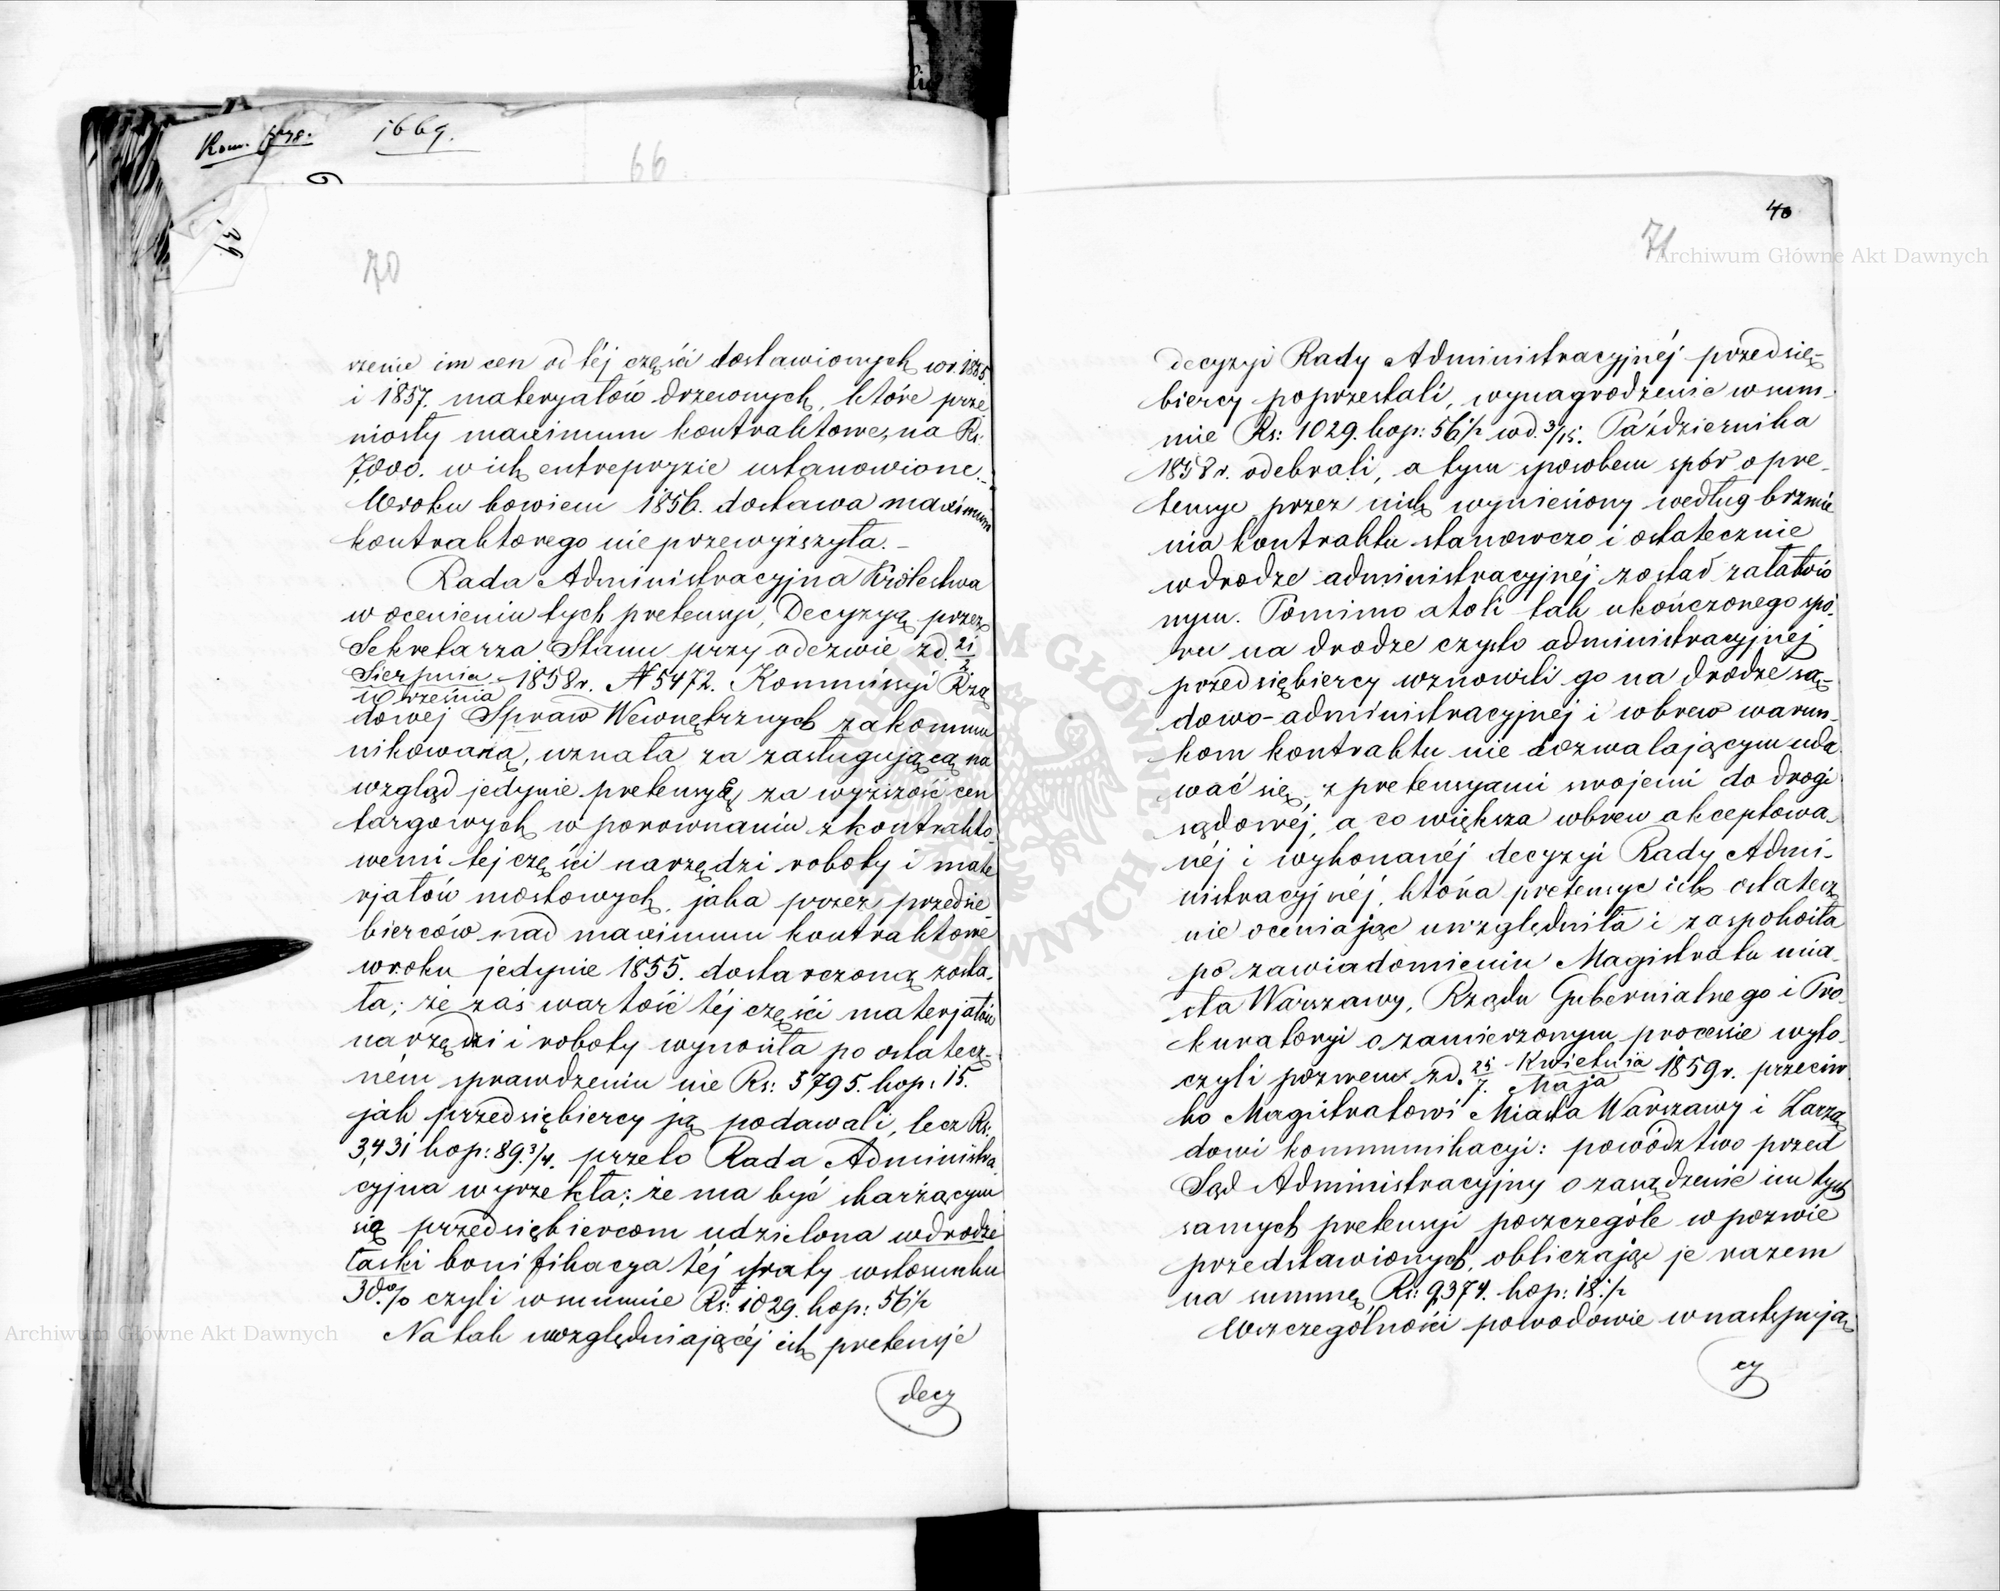 Kom. przy. 1669.
66
6
39
70
szenie im cen od téj części dostawionych w r. 1855.
i 1857. materyałów drzewnych, które prze
niosły maximum kontraktowe, na Rs:
7,000. w ich entrepryzie ustanowione.-
W roku bowiem 1856. dostawa maximum
kontraktowego nieprzewyższyła.-
Rada Administracyjna Królestwa
w ocenieniu tych pretensyi, Decyzyą przez
Sekretarza Stanu przy odezwie z d. 21/2
Sierpnia/Września 1858 r. N 5472. Kommissyi Rzą
dowej Spraw Wewnętrznych zakommu
nikowaną, uznała za zasługującą na
wzgląd jedynie pretensyę za wyższość cen
targowych w porownaniu z kontrakto
wemi tej części narzędzi roboty i mate
rjałów mostowych, jaka przez przedsię
bierców nad maximum kontraktowe
w roku jedynie 1855. dostarczoną zosta-
ła; że zaś wartość téj części materjałów
narzędzi i roboty wynosiła po ostatecz-
ném sprawdzeniu nie Rs: 5795. kop: 15.
jak przedsiębiercy ją podawali, lecz Rs:
3,431 kop: 89 3/4. przeto Rada Administra
cyjna wyrzekła; że ma być skarżącym
się przedsiębiercom udzielona w drodze
łaski bonifikacya téj straty w stosunku
30% czyli w summie Rs: 1029. kop: 56 1/2
Na tak uwzględniającéj ich pretensje
decy
40
71
decyzyi Rady Administracyjnéj przedsię-
biercy poprzestali, wynagrodzenie w sum-
mie Rs: 1029. kop: 56 1/2 w d. 3/15. Października
1858 r. odebrali, a tym sposobem spór o pre-
tensye przez nich wyniesiony według brzmie
nia kontraktu stanowczo i ostatecznie
w drodze administracyjnéj został załatwio
nym. Pomimo atoli tak ukończonego spo-
ru na drodze czysto administracyjnej
przedsiębiercy wznowili go na drodze są-
dowo-administracyjnej i wbrew warun-
kom kontraktu nie dozwalającym uda
wać się z pretensyami swojemi do drogi
sądowéj, a co większa wbrew akceptowa-
néj i wykonanéj decyzyi Rady Admi-
nistracyjnéj, która pretensye ich ostatecz
nie oceniając uwzględniła i zaspokoiła
po zawiadomieniu Magistratu mia-
sta Warszawy, Rządu Gubernialnego i Pro-
kuratoryi o zamierzonym procesie wyto-
czyli pozwem z d. 25/7. Kwietnia/Maja 1859 r. przeciw-
ko Magistratowi Miasta Warszawy i Zarzą
dowi kommunikacyi: powództwo przed
Sąd Administracyjny o zasądzenie im tych
samych pretensyi poszczególe w pozwie
przedstawionych, obliczając je razem
na summę Rs: 9,374. kop: 18 1/2
W szczególności powodowie w następują
cy